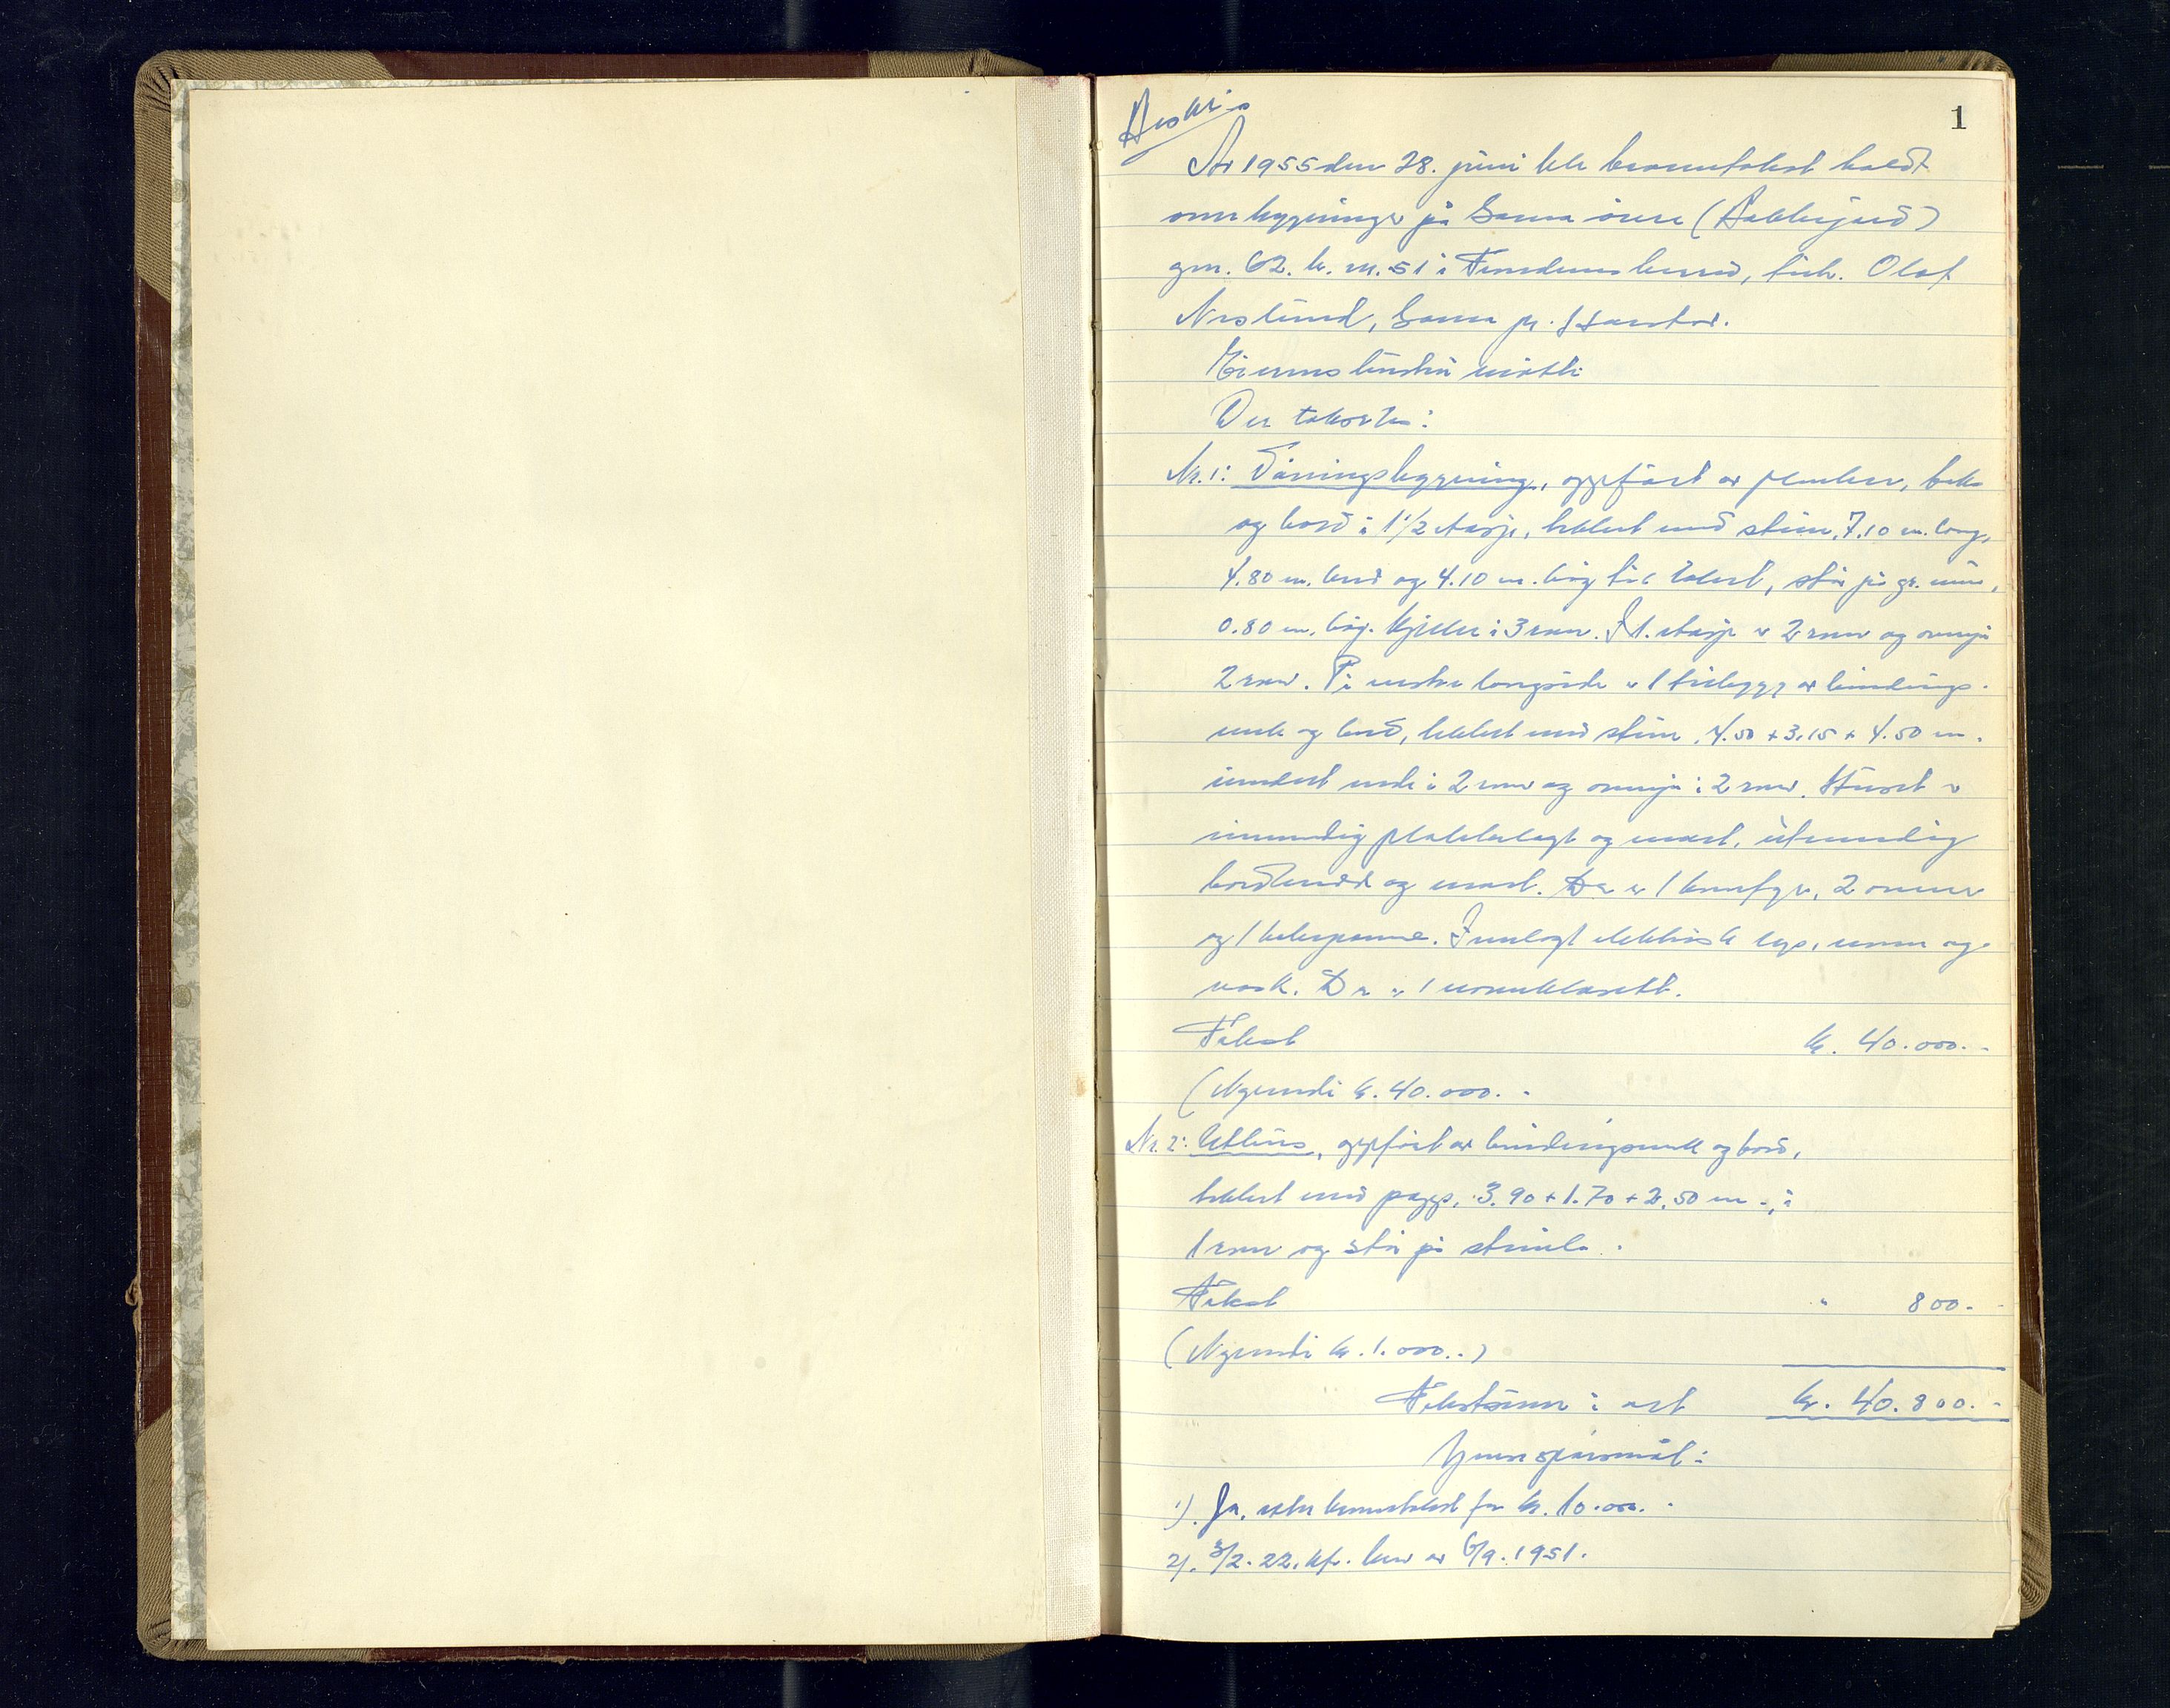 1
År 1955 den 28. juni ble branntakst holdt
over bygninger på Sama øvre (Bakkejord)
gnr. 62. b. nr. 51 i Trondenes herred, tilh. Olaf
Neslund, Sama pr. Harstad.
Eierens hustru møtte
Der taksertes:
Nr. 1: Våningsbygning, oppført av planker, bekn
og bord i 1 1/2 etasje, tekket med stein, 7.10 m. lang,
4.80 m. bred og 4.10 m. høg til taket, står på gr. mur,
0.80 m. høg. Kjeller i 3 rum. I 1. etasje er 2 rum og ovenpå
2 rum. På vestre langside er 1 tilbygg av bindings-
verk og bord, tekket med stein, 4.50 + 3.15 + 4.50 m.
innredet nede i 2 rum og ovenpå i 2 rum. Huset er
innvendig platekledt og malt, utvendig
bordkledd og malt. Der er 1 komfyr, 2 ovner
og 1 bakerpanne. Innlagt elektrisk lys, vann og
vask. Der er 1 vannklosett.
Takst kr. 40.000.-
(Nyverdi kr. 40.000.-
Nr. 2: Uthus, oppført av bindingsverk og bord,
tekket med papp, 3.90 + 1.70 + 2.50 m., i
1 rum og står på steinla.
Takst " 800.-
(Nyverdi kr. 1.000.-)
Takstsum i alt kr. 40.800.-
Hjemme spørsmål:
1). Ja, etter branntakst for kr. 10.000.-
2). 3/2.22. kfr. brev av 6/9.1951.